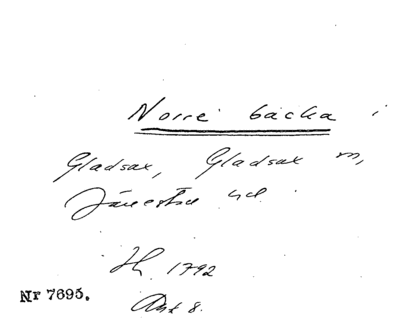 Norre backa i
Gladsax, Gladsax m,
Järrestad hd.
Sk. 1792
Akt 8.
Nr 7695.